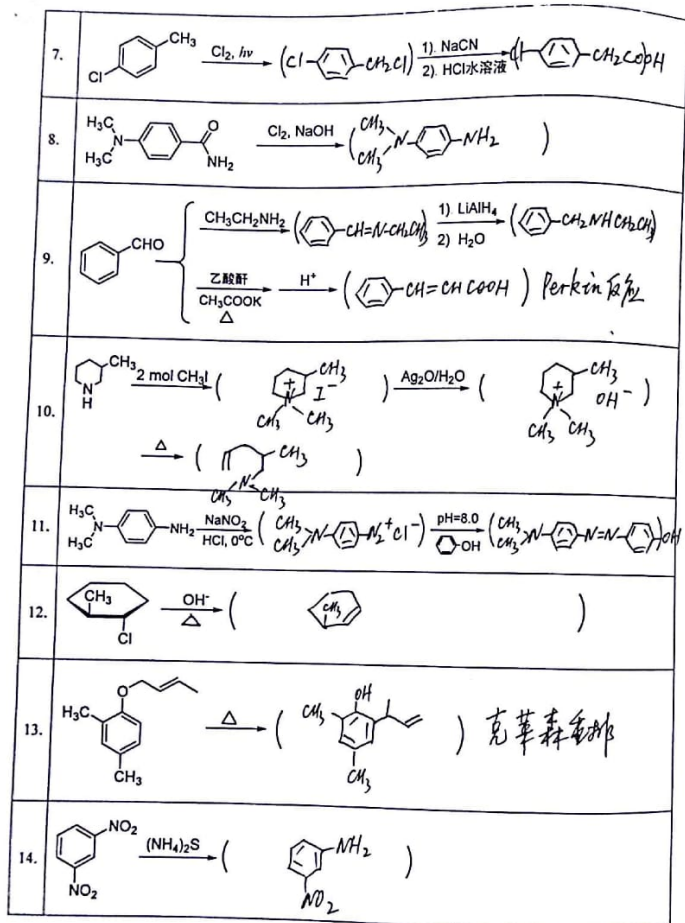 7. CH₃ Cl Cl₂, hν (Cl- -CH₂Cl) 1). NaCN 2). HCl水溶液 (Cl- -CH₂COOH)
8. H₃C N H₃C O NH₂ Cl₂, NaOH (CH₃ CH₃ N- -NH₂ )
9. CHO CH₃CH₂NH₂ ( -CH=N-CH₂CH₃) 1). LiAlH₄ 2) H₂O ( -CH₂NHCH₂CH₃)
乙酸酐 CH₃COOK △ H⁺ ( -CH=CHCOOH ) Perkin反应
10. CH₃ N H 2 mol CH₃I ( CH₃ N + I⁻ CH₃ CH₃ ) Ag₂O/H₂O ( CH₃ N + OH⁻ CH₃ CH₃ )
△ ( CH₃ N CH₃ CH₃ )
11. H₃C N H₃C NH₂ NaNO₂ HCl, 0°C (CH₃ CH₃ N- -N₂⁺Cl⁻) pH=8.0 -OH (CH₃ CH₃ N- -N=N- -OH)
12. CH₃ Cl OH⁻ △ ( CH₃ )
13. O H₃C CH₃ △ ( OH CH₃ CH₃ ) 克莱森重排
14. NO₂ NO₂ (NH₄)₂S ( NH₂ NO₂ )